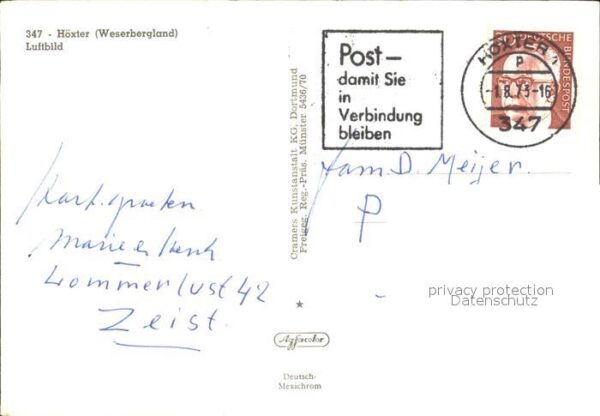 347 - Höxter (Weserbergland)
Luftbild
Post—
damit Sie
in
Verbindung
bleiben
DEUTSCHE BUNDESPOST
HÖXTER 1
p
-1.8.73-16
347
Cramers Kunstanstalt KG, Dortmund
Freigeg. Reg.-Präs. Münster 5436/70
Fam. D. Meijer.
P
Hart. groeten
Marie en Henk
Lommerlust 42
Zeist.
privacy protection
Datenschutz
Agfacolor
Deutsch-
Mexichrom